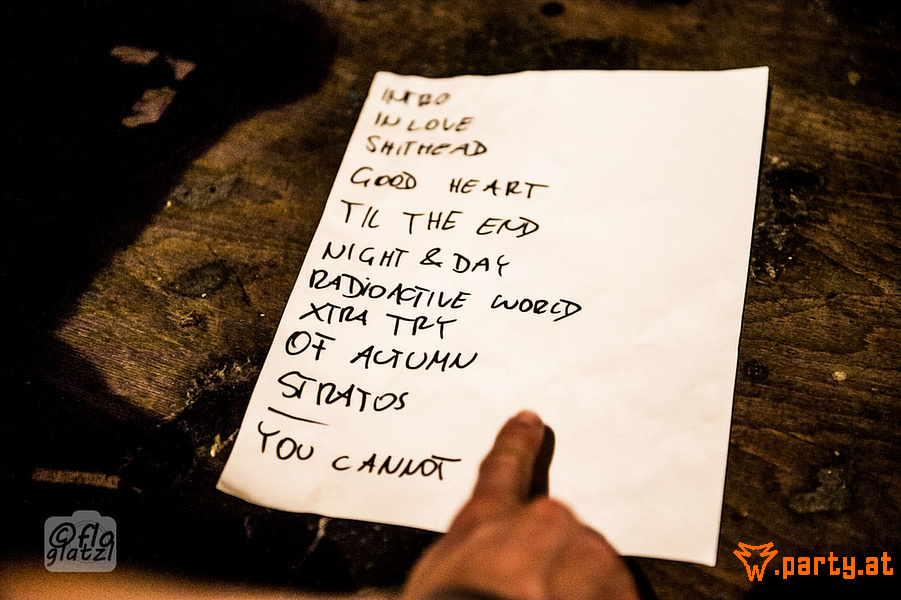 INTRO
IN LOVE
SHITHEAD
GOOD HEART
TIL THE END
NIGHT & DAY
RADIOACTIVE WORLD
XTRA TRY
OF AUTUMN
STRATOS
YOU CANNOT
©flo
glatzl
.party.at